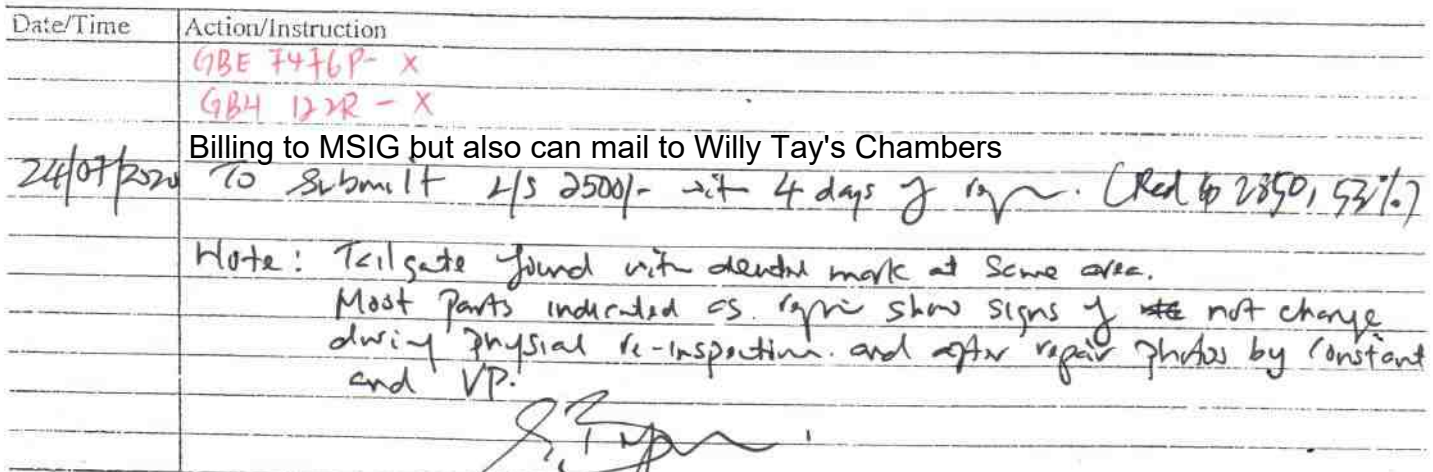 Date/Time Action/Instruction
GBE 7476P- X
GBH 122R - X
Billing to MSIG but also can mail to Willy Tay's Chambers
24/07/2020 To Submit L/S 2500/- with 4 days of repair. (Red to 2850, 53%)
Note: Tailgate found with dented mark at same area.
Most Parts indicated as repair show signs of not change
during physial re-inspection. and after repair photos by Constant
and VP.